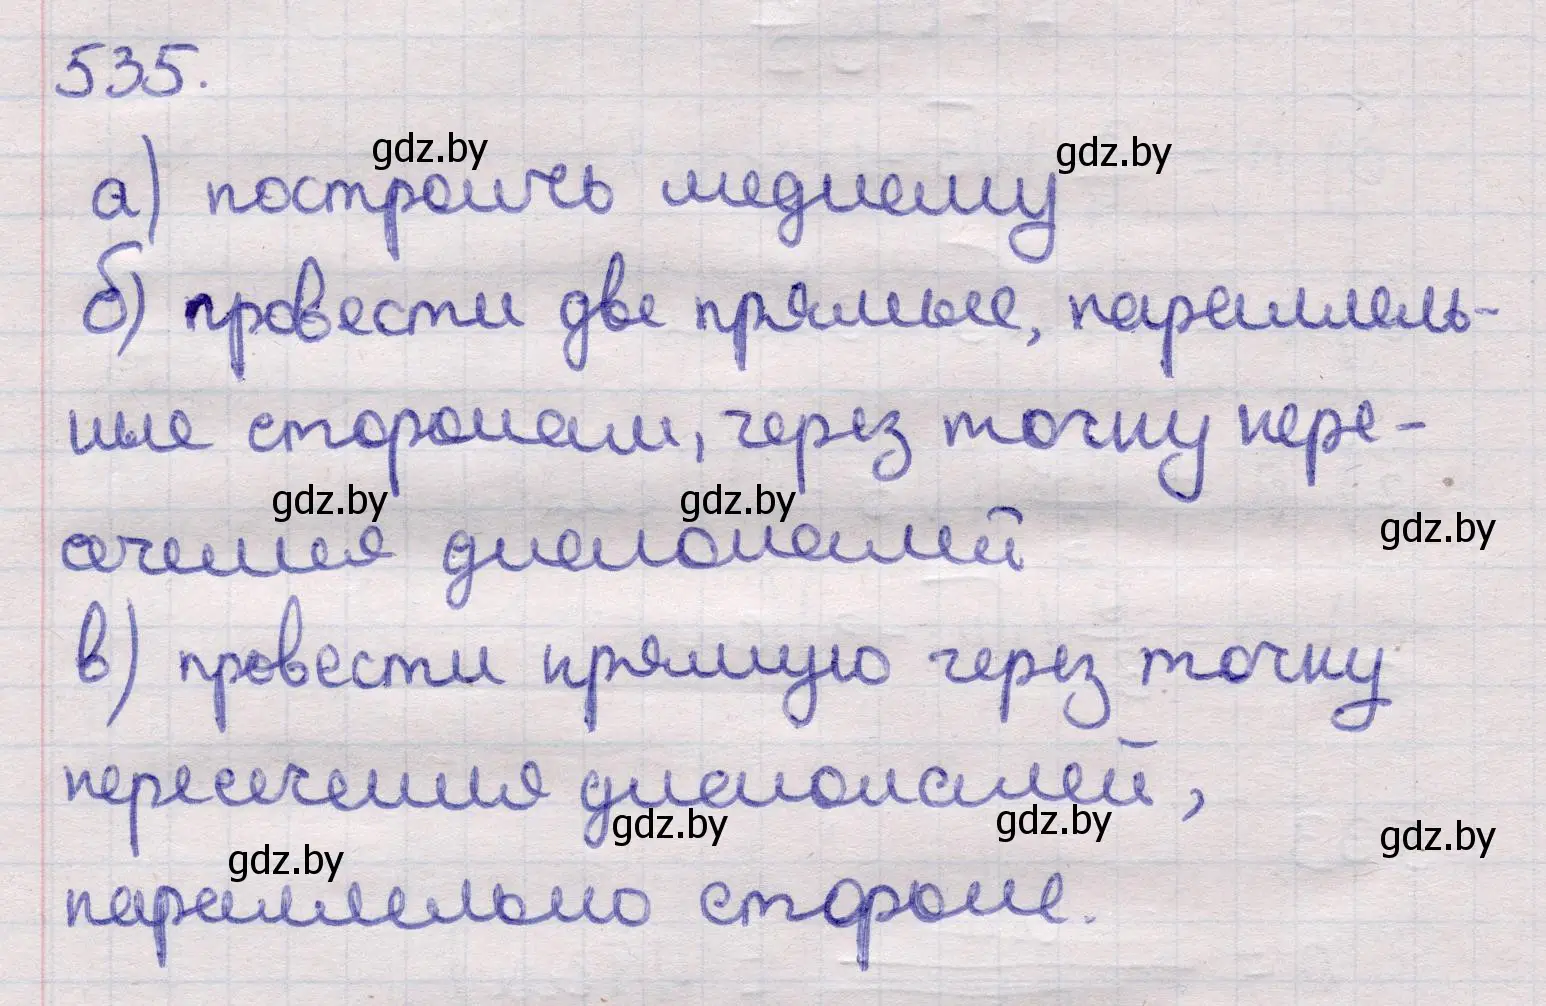 535.
gdz.by gdz.by
а) построить медиану
б) провести две прямые, параллель-
ные сторонам, через точку пере-
gdz.by gdz.by gdz.by
сечения диагоналей
в) провести прямую через точку
пересечения диагоналей,
gdz.by gdz.by gdz.by
gdz.by
параллельно стороне.